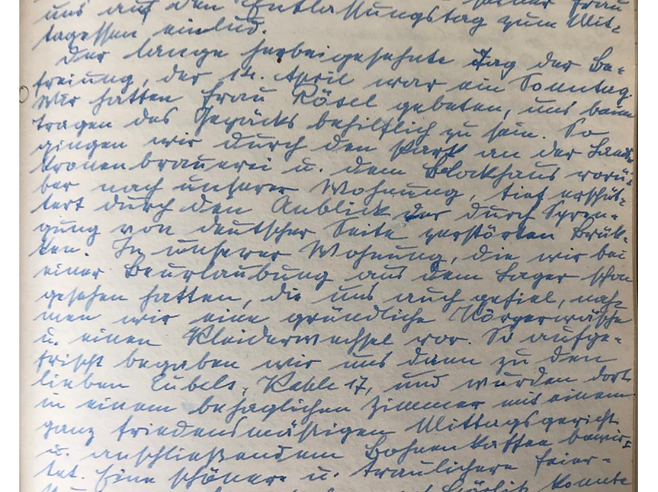 seiner Frau
uns auf den Entlassungstag zum Mit-
tagessen einlud.
Der lange herbeigesehnte Tag der Be-
freiung, der 14. April war ein Sonntag.
Wir hatten Frau Rösel gebeten, uns beim
tragen des Gepäcks behilflich zu sein. So
gingen wir durch den Park an der Land-
kronenbrauerei u. dem Blockhaus vorü-
ber nach unserer Wohnung, tief erschüt-
tert durch den Anblick der durch Spren-
gung von deutscher Seite zerstörten Brük-
ken. In unserer Wohnung, die wir bei
einer Beurlaubung aus dem Lager schon
gesehen hatten, die uns auch gefiel, nah-
men wir eine gründliche Körperwäsche
u. einen Kleiderwechsel vor. So aufge-
frischt begaben wir uns dann zu den
lieben 17, und wurden dort
in einem behaglichen Zimmer mit einem
ganz friedensmäßigen Mittagsgericht
u. anschließendem Bohnenkaffee bewir-
tet. Eine schönere u. traulichere Feier-
konnte